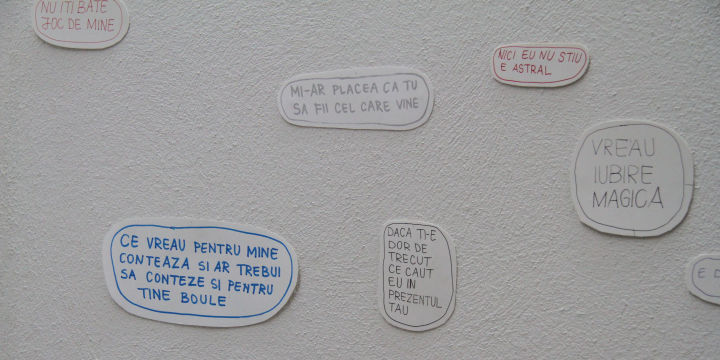 NU ITI BATE
JOC DE MINE
NICI EU NU STIU
E ASTRAL
MI-AR PLACEA CA TU
SA FII CEL CARE VINE
VREAU
IUBIRE
MAGICA
CE VREAU PENTRU MINE
CONTEAZA SI AR TREBUI
SA CONTEZE SI PENTRU
TINE BOULE
DACA TI-E
DOR DE
TRECUT
CE CAUT
EU IN
PREZENTUL
TAU
E